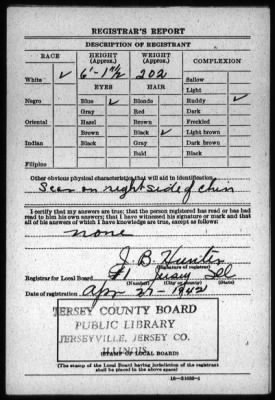 REGISTRAR'S REPORT
DESCRIPTION OF REGISTRANT
RACE HEIGHT (Approx.) WEIGHT (Approx.) COMPLEXION
White ✓ 6'-1 1/2 202 Sallow
EYES HAIR Light
Negro Blue ✓ Blonde Ruddy ✓
Gray Red Dark
Oriental Hazel Brown Freckled
Brown Black ✓ Light brown
Indian Black Gray Dark brown
Bald Black
Filipino
Other obvious physical characteristics that will aid in identification
Scar on right side of chin
I certify that my answers are true; that the person registered has read or has had
read to him his own answers; that I have witnessed his signature or mark and that
all of his answers of which I have knowledge are true, except as follows:
none
J. B. Hunter
(Signature of registrar)
Registrar for Local Board #1 Jersey Ill
(Number) (City or county) (State)
Date of registration Apr 27-1942
JERSEY COUNTY BOARD
PUBLIC LIBRARY
JERSEYVILLE, JERSEY CO.
ILLINOIS
(STAMP OF LOCAL BOARD)
(The stamp of the Local Board having jurisdiction of the registrant
shall be placed in the above space)